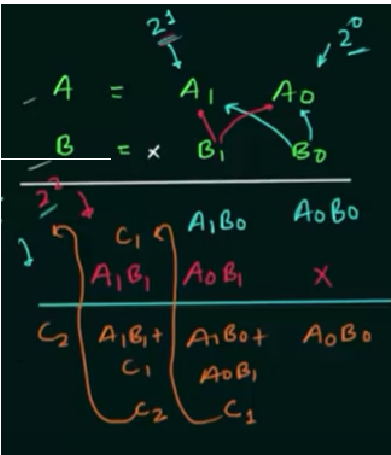 2¹ 2⁰
A = A₁ A₀
B = × B₁ B₀
2²
C₁ A₁B₀ A₀B₀
A₁B₁ A₀B₁ ×
C₂ A₁B₁+ A₁B₀+ A₀B₀
C₁ A₀B₁
C₂ C₁